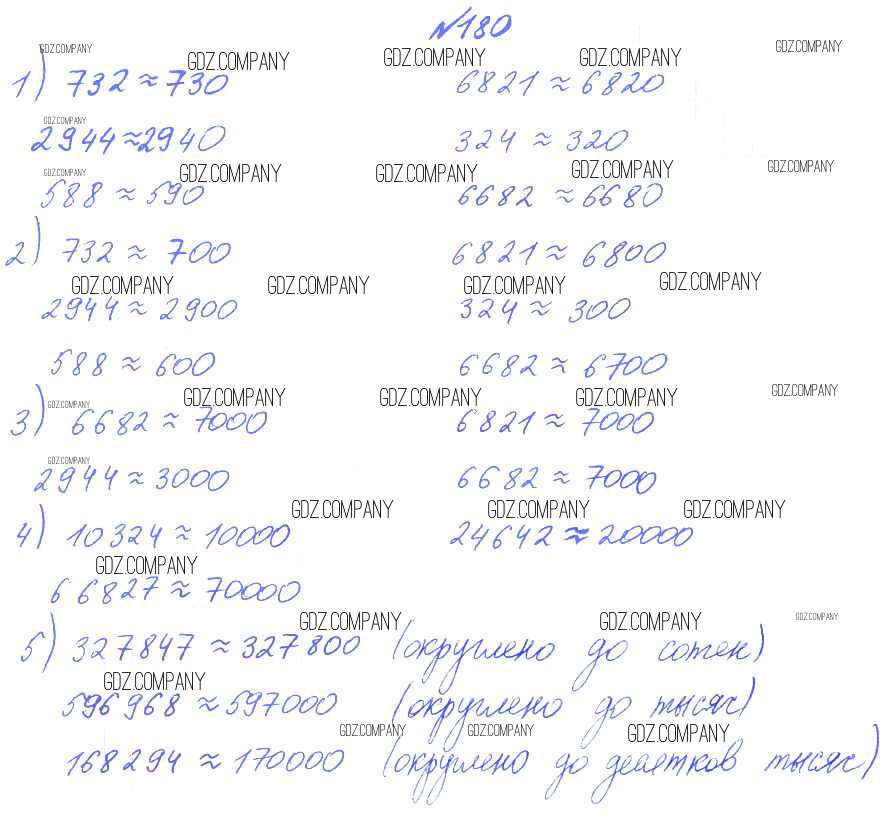 №180
GDZ.COMPANY GDZ.COMPANY GDZ.COMPANY GDZ.COMPANY GDZ.COMPANY
1) 732 ≈ 730 6821 ≈ 6820
GDZ.COMPANY
2944 ≈ 2940 324 ≈ 320
GDZ.COMPANY GDZ.COMPANY GDZ.COMPANY GDZ.COMPANY GDZ.COMPANY
588 ≈ 590 6682 ≈ 6680
2) 732 ≈ 700 6821 ≈ 6800
GDZ.COMPANY GDZ.COMPANY GDZ.COMPANY GDZ.COMPANY
2944 ≈ 2900 324 ≈ 300
588 ≈ 600 6682 ≈ 6700
GDZ.COMPANY GDZ.COMPANY GDZ.COMPANY GDZ.COMPANY GDZ.COMPANY
3) 6682 ≈ 7000 6821 ≈ 7000
GDZ.COMPANY
2944 ≈ 3000 6682 ≈ 7000
GDZ.COMPANY GDZ.COMPANY GDZ.COMPANY
4) 10324 ≈ 10000 24642 ≈ 20000
GDZ.COMPANY
66827 ≈ 70000
GDZ.COMPANY GDZ.COMPANY GDZ.COMPANY
5) 327847 ≈ 327800 (округлено до сотен)
GDZ.COMPANY
596968 ≈ 597000 (округлено до тысяч)
GDZ.COMPANY GDZ.COMPANY GDZ.COMPANY
168294 ≈ 170000 (округлено до десятков тысяч)